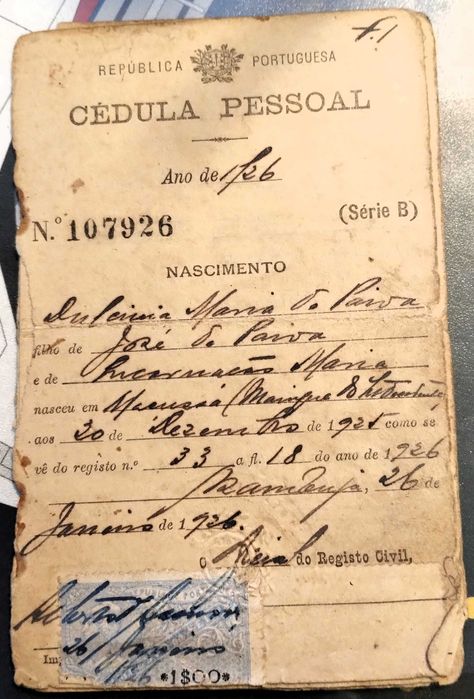 f. 1
REPÚBLICA PORTUGUESA
CÉDULA PESSOAL
Ano de 1926
N.º 107926 (Série B)
NASCIMENTO
Dulcinia Maria de Paiva
filho de José de Paiva
e de Encarnação Maria
nasceu em
aos 20 de Dezembro de 1925 como se
vê do registo n.º 33 a fl. 18 do ano de 1926
Azambuja, 26 de
Janeiro de 1926.
O Oficial do Registo Civil,
26 Janeiro
1926
1$00